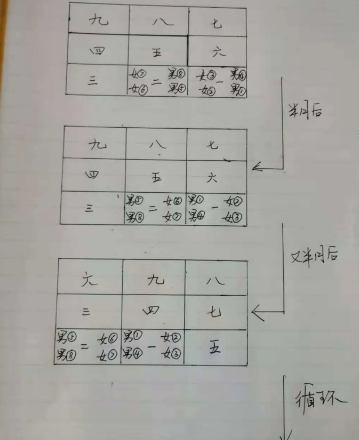 九 八 七
四 五 六
三 女⑦ 女⑥ 二 男⑤ 男⑧ 女③ 女② 一 男④ 男①
半月后
九 八 七
四 五 六
三 男⑤ 男⑧ 二 女⑥ 女⑦ 男① 男④ 一 女② 女③
又半月后
六 九 八
三 四 七
男⑤ 男⑧ 二 女⑥ 女⑦ 男① 男④ 一 女② 女③ 五
循环